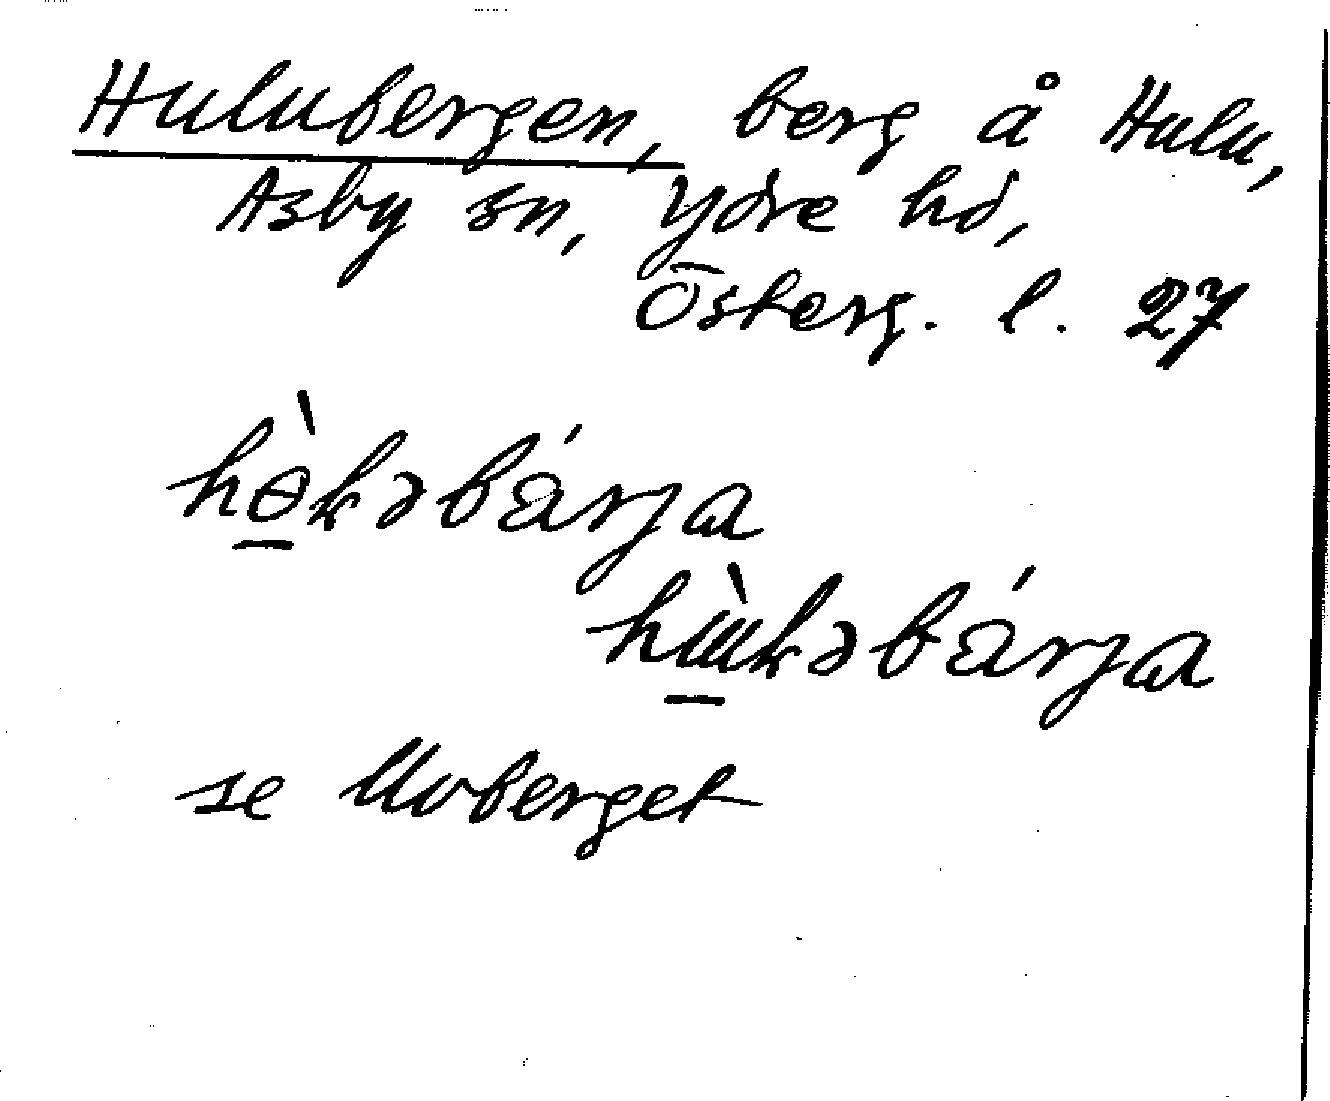 Hulubergen, berg å Hulu,
Asby sn, Ydre hd,
Österg. l. 27
hɵ̠̀lɾəbárja
hɯ̠̀lɾəbárja
se Uvberget